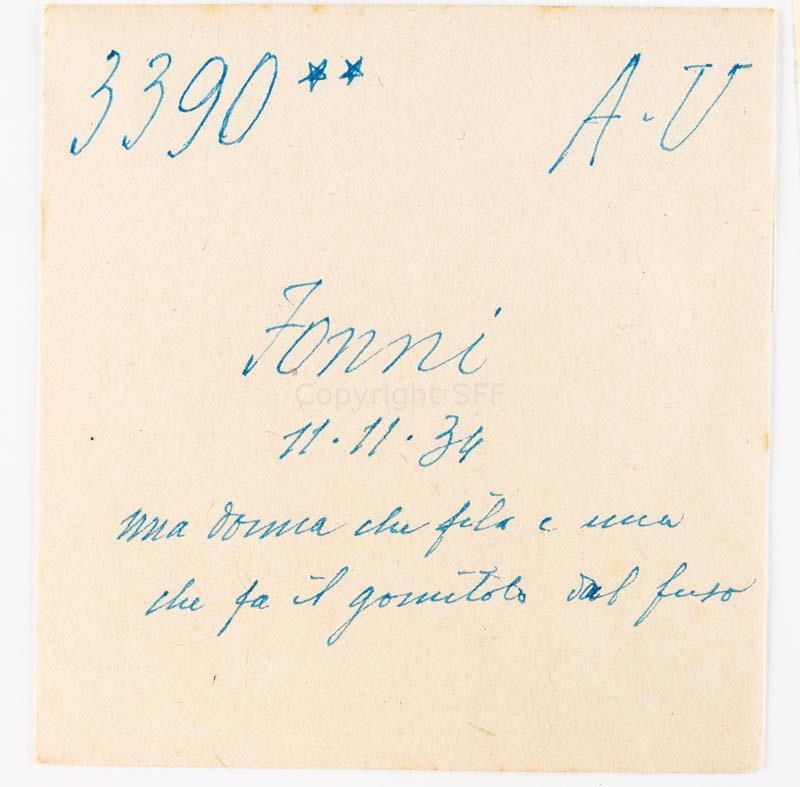 3390** A.V
Fonni
Copyright SFF
11.11.34
una donna che fila e una
che fa il gomitolo dal fuso